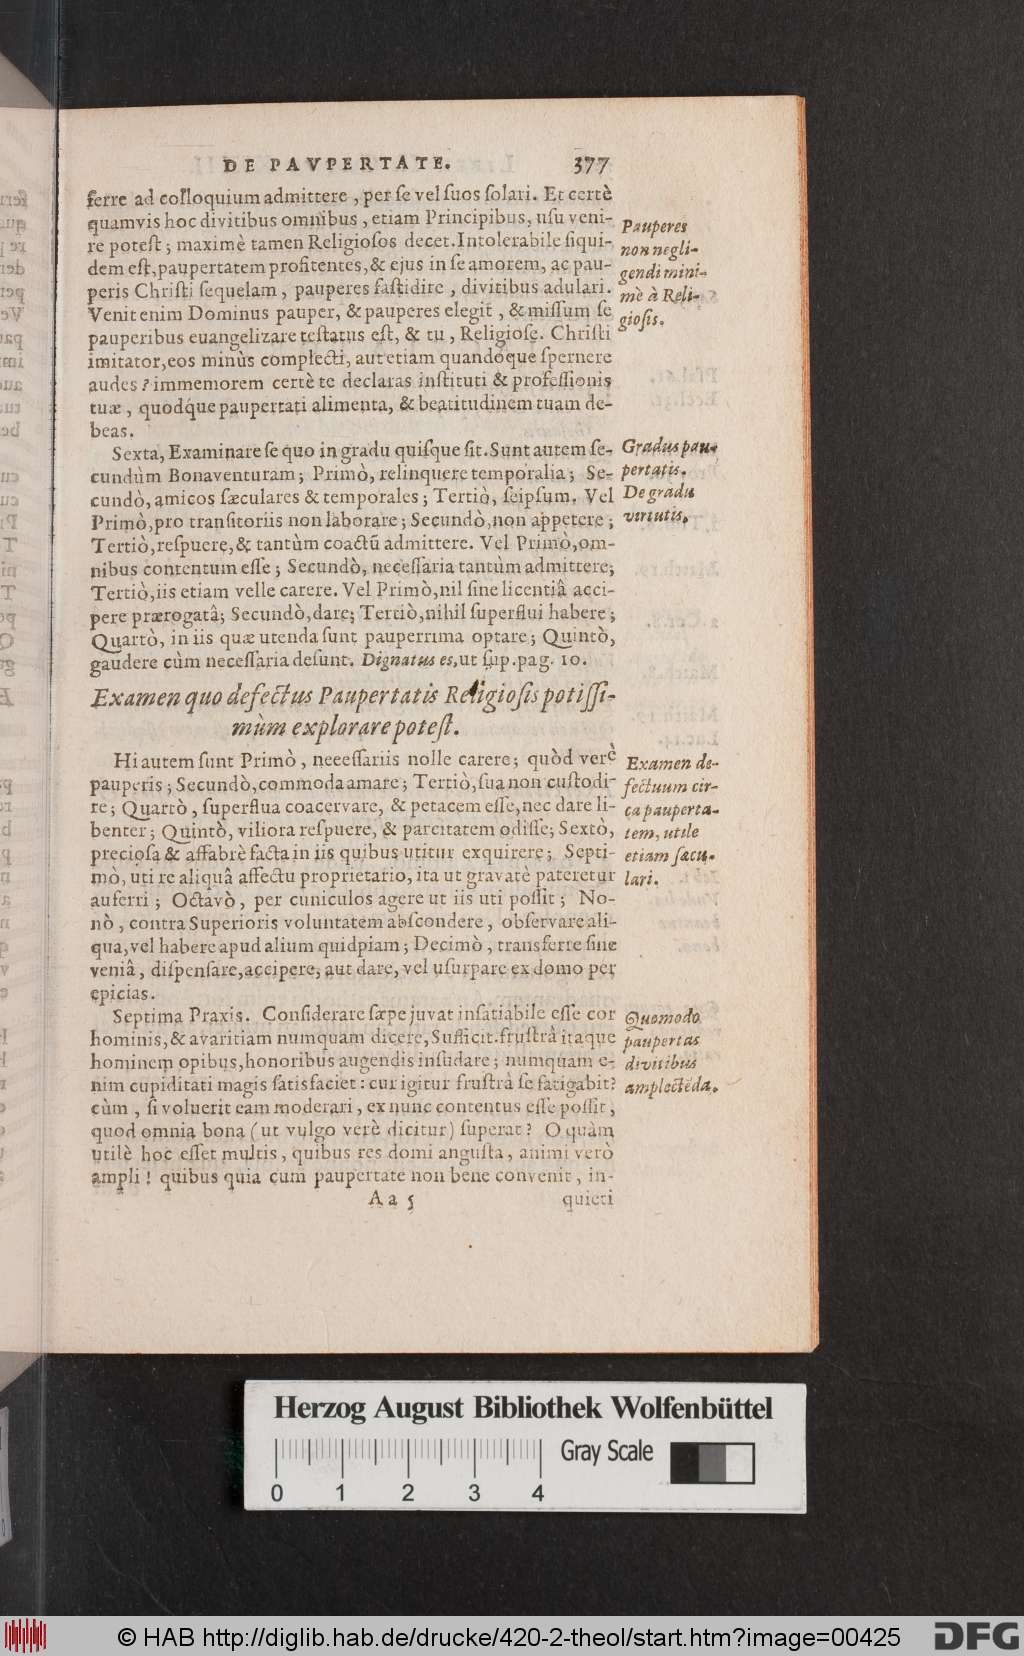 DE PAVPERTATE. 377
ferre ad colloquium admittere, per se vel suos solari. Et certè
quamvis hoc divitibus omnibus, etiam Principibus, usu veni-
re potest; maximè tamen Religiosos decet. Intolerabile siqui-
dem est, paupertatem profitentes, & ejus in se amorem, ac pau-
peris Christi sequelam, pauperes fastidire, divitibus adulari.
Venit enim Dominus pauper, & pauperes elegit, & missum se
pauperibus euangelizare testatus est, & tu, Religiose. Christi
imitator, eos minùs complecti, aut etiam quandóque spernere
audes? immemorem certè te declaras instituti & professionis
tuæ, quodq́ue paupertati alimenta, & beatitudinem tuam de-
beas.
Pauperes
non negli-
gendi mini-
mè à Reli-
giosis.
Sexta, Examinare se quo in gradu quisque sit. Sunt autem se-
cundùm Bonaventuram; Primò, relinquere temporalia; Se-
cundò, amicos sæculares & temporales; Tertiò, seipsum. Vel
Primò, pro transitoriis non laborare; Secundò, non appetere;
Tertiò, respuere, & tantùm coactū admittere. Vel Primò, om-
nibus contentum esse; Secundò, necessaria tantùm admittere;
Tertiò, iis etiam velle carere. Vel Primò, nil sine licentiâ acci-
pere prærogatâ; Secundò, dare; Tertiò, nihil superflui habere;
Quartò, in iis quæ utenda sunt pauperrima optare; Quintò,
gaudere cùm necessaria desunt. Dignatus es, ut sup. pag. 10.
Gradus pau-
pertatis.
De gradu
virtutis.
Examen quo defectus Paupertatis Religiosis potissi-
mùm explorare potest.
Hi autem sunt Primò, neeessariis nolle carere; quòd verè
pauperis; Secundò, commoda amare; Tertiò, sua non custodi-
re; Quartò, superflua coacervare, & petacem esse, nec dare li-
benter; Quintò, viliora respuere, & parcitatem odisse; Sextò,
preciosa & affabrè facta in iis quibus utitur exquirere; Septi-
mò, uti re aliquâ affectu proprietario, ita ut gravatè pateretur
auferri; Octavò, per cuniculos agere ut iis uti possit; No-
nò, contra Superioris voluntatem abscondere, observare ali-
qua, vel habere apud alium quidpiam; Decimò, transferre sine
veniâ, dispensare, accipere, aut dare, vel usurpare ex domo per
epicias.
Examen de-
fectuum cir-
ca pauperta-
tem, utile
etiam sæcu-
lari.
Septima Praxis. Considerare sæpe juvat insatiabile esse cor
hominis, & avaritiam numquam dicere, Sufficit. frustrà itaque
hominem opibus, honoribus augendis insudare; numquam e-
nim cupiditati magis satisfaciet: cur igitur frustrà se fatigabit?
cùm, si voluerit eam moderari, ex nunc contentus esse possit;
quod omnia bona (ut vulgo verè dicitur) superat? O quàm
utilè hoc esset multis, quibus res domi angusta, animi verò
ampli! quibus quia cum paupertate non bene convenit, in-
Quomodo
paupertas
divitibus
amplectēda.
A a 5 quieti
Herzog August Bibliothek Wolfenbüttel
Gray Scale
0 1 2 3 4
© HAB http://diglib.hab.de/drucke/420-2-theol/start.htm?image=00425
DFG